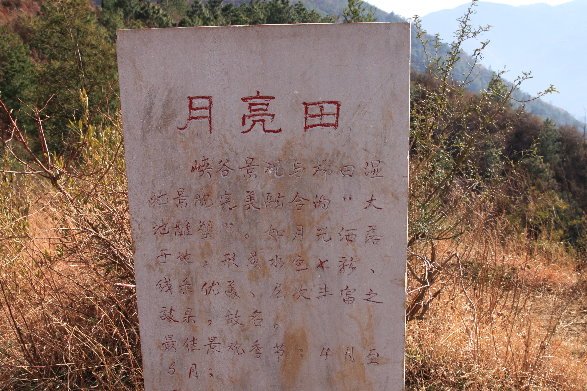 月亮田
峡谷景观与梯田湿
地景观完美结合的“大
地雕塑”。如月光洒落
于此，形若水色
线条优美、层次丰富之
故名。
最佳景观季节：4月至
5月。